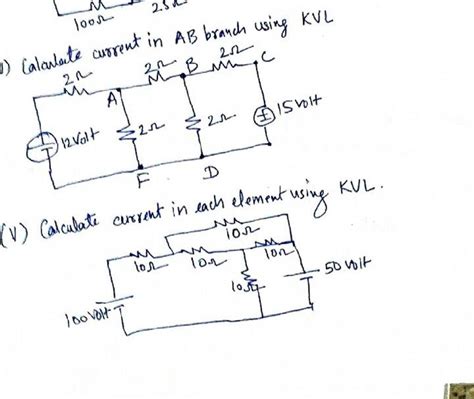 100Ω 25Ω
) Calculate current in AB branch using KVL
2Ω 2Ω B 2Ω C
A
12Volt 2Ω 2Ω 15Volt
F D
(V) Calculate current in each element using KVL.
10Ω
10Ω 10Ω 10Ω
10Ω 50 Volt
100Volt